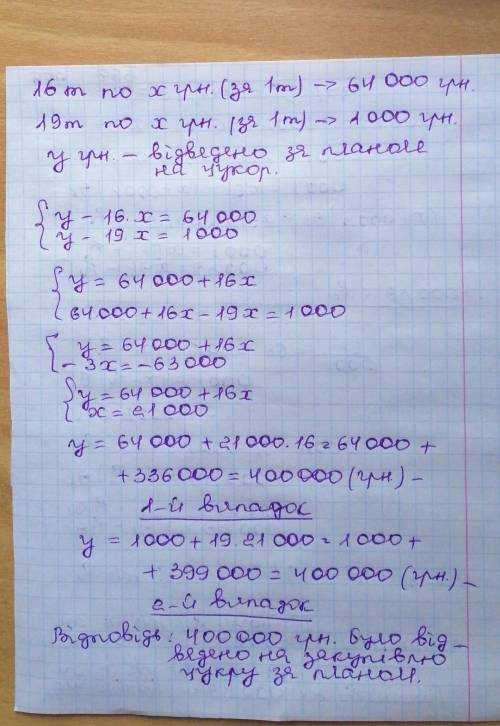 16т по x грн. (за 1т) -> 64 000 грн.
19т по x грн. (за 1т) -> 1 000 грн.
y грн. - відведено за планом
на цукор.
y - 16. x = 64 000
y - 19. x = 1000
y = 64 000 + 16x
64000 + 16x - 19x = 1 000
y = 64 000 + 16x
- 3x = -63 000
y = 64 000 + 16x
x = 21 000
y = 64 000 + 21 000. 16 = 64 000 +
+ 336 000 = 400 000 (грн) -
1-й випадок
y = 1000 + 19. 21 000 = 1 000 +
+ 399 000 = 400 000 (грн.) -
2-й випадок
Відповідь: 400 000 грн. було від-
ведено на закупівлю
цукру за планом.